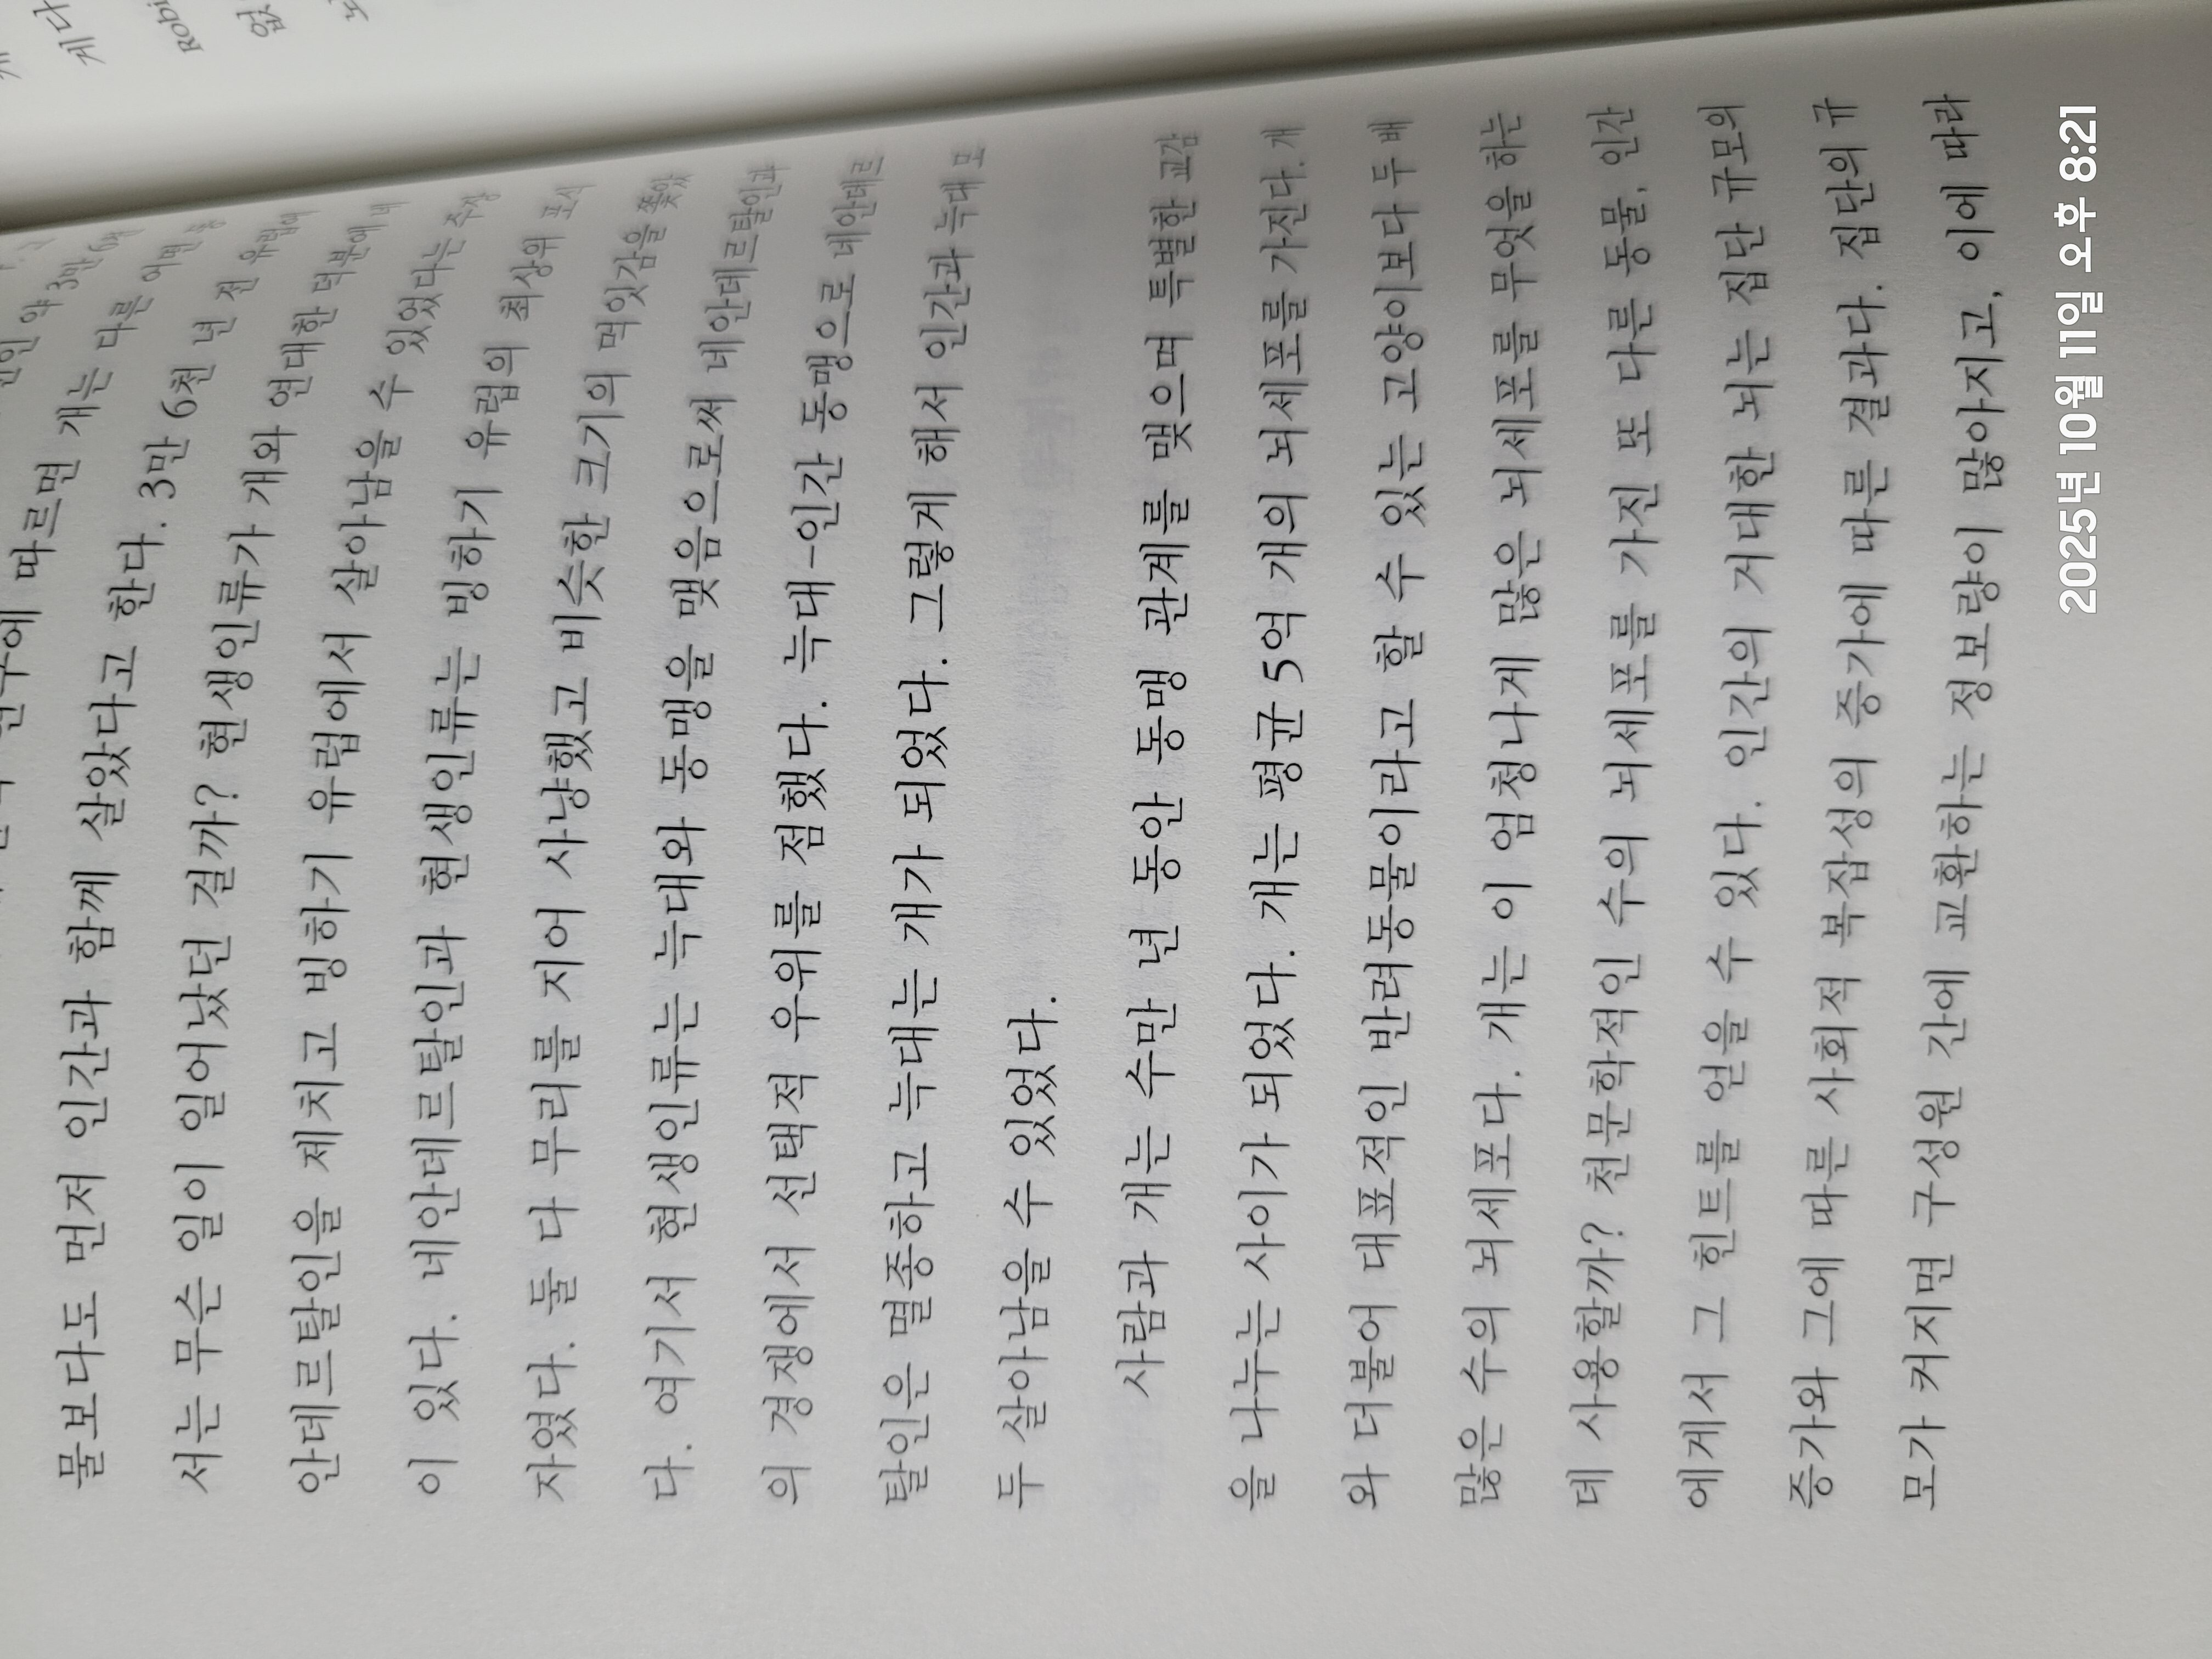 게다
Robi
없
연구에 따르면 개는 다른 어떤 동
물보다도 먼저 인간과 함께 살았다고 한다. 3만 6천 년 전 유럽에
서는 무슨 일이 일어났던 걸까? 현생인류가 개와 연대한 덕분에 네
안데르탈인을 제치고 빙하기 유럽에서 살아남을 수 있었다는 주장
이 있다. 네안데르탈인과 현생인류는 빙하기 유럽의 최상위 포식
자였다. 둘 다 무리를 지어 사냥했고 비슷한 크기의 먹잇감을 쫓았
다. 여기서 현생인류는 늑대와 동맹을 맺음으로써 네안데르탈인과
의 경쟁에서 선택적 우위를 점했다. 늑대-인간 동맹으로 네안데르
탈인은 멸종하고 늑대는 개가 되었다. 그렇게 해서 인간과 늑대 모
두 살아남을 수 있었다.
사람과 개는 수만 년 동안 동맹 관계를 맺으며 특별한 교감
을 나누는 사이가 되었다. 개는 평균 5억 개의 뇌세포를 가진다. 개
와 더불어 대표적인 반려동물이라고 할 수 있는 고양이보다 두 배
많은 수의 뇌세포다. 개는 이 엄청나게 많은 뇌세포를 무엇을 하는
데 사용할까? 천문학적인 수의 뇌세포를 가진 또 다른 동물, 인간
에게서 그 힌트를 얻을 수 있다. 인간의 거대한 뇌는 집단 규모의
증가와 그에 따른 사회적 복잡성의 증가에 따른 결과다. 집단의 규
모가 커지면 구성원 간에 교환하는 정보량이 많아지고, 이에 따라
2025년 10월 11일 오후 8:21